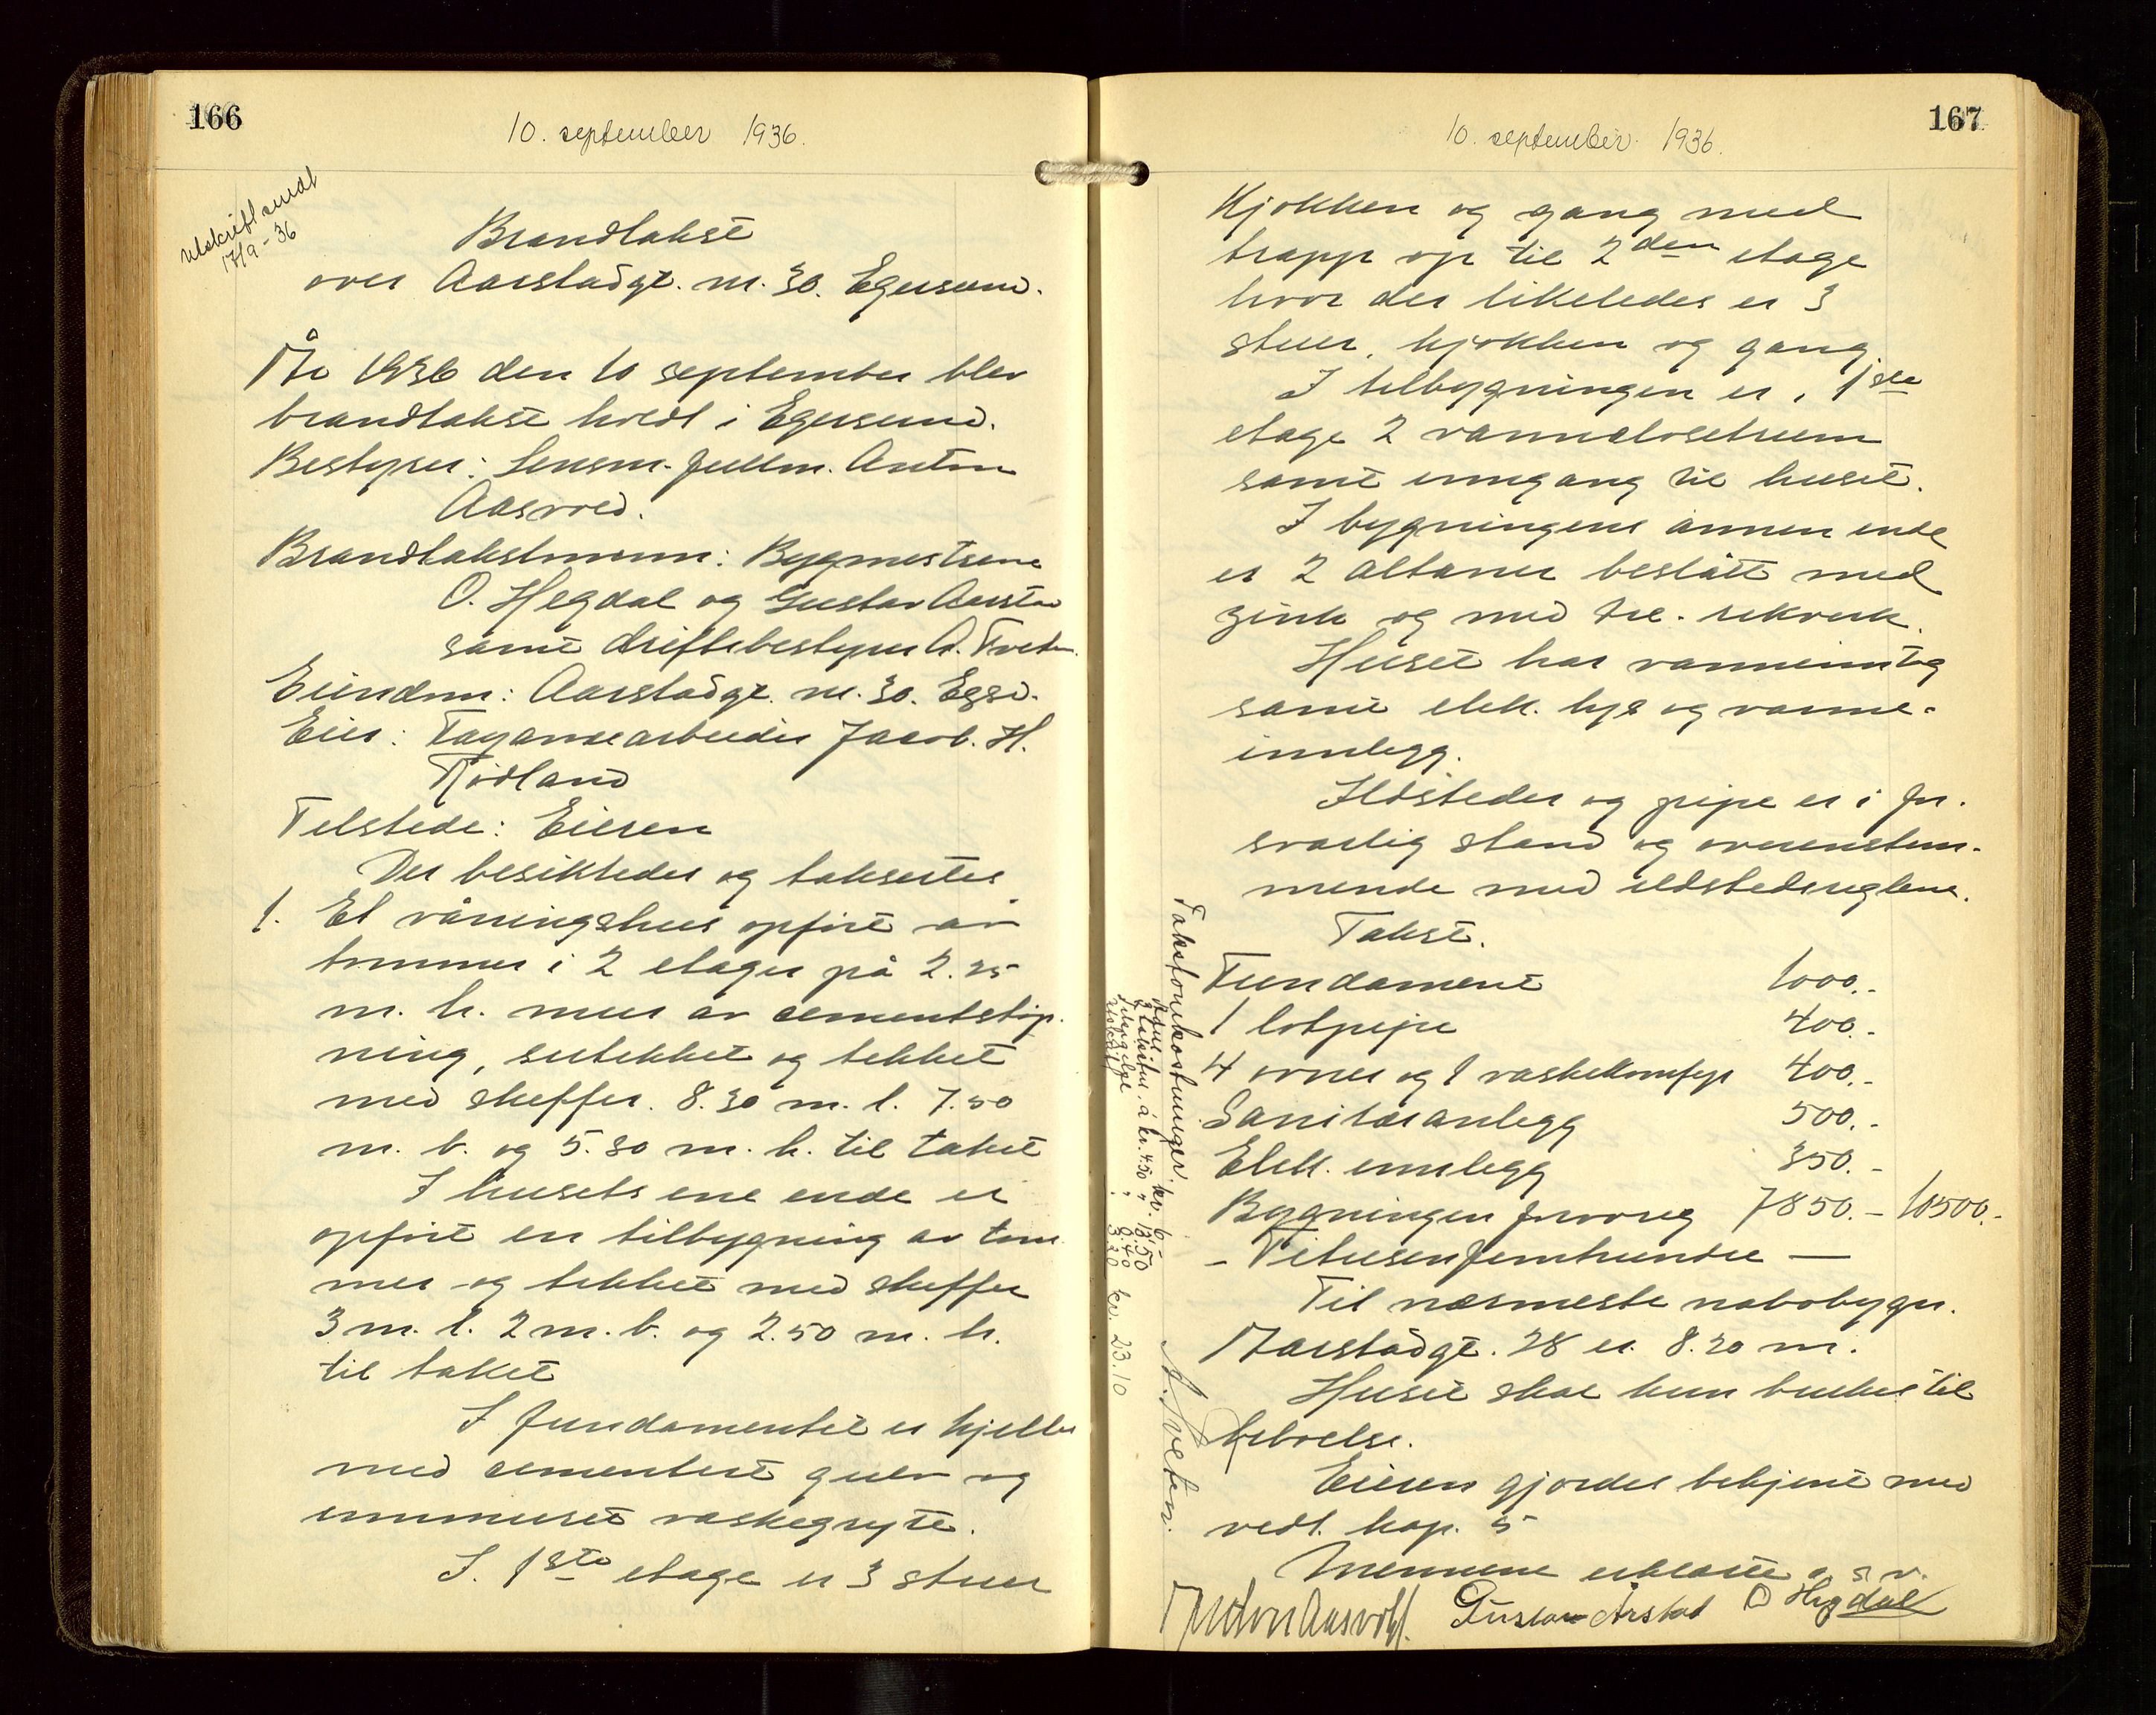 166
10. september 1936.
Utskrift sendt
17/9-36
Brandtakst
over Aarstadgt. nr. 30. Egersund.
År 1936 den 10 september blev
brandtakst holdt i Egersund.
Bestyrer: Lensm. fullm. Anton
Aasvold.
Brandtakstmenn: Bygmestrene
O. Hegdal og Gustav Aarstad
samt driftsbestyrer A. Tveten.
Eiendom: Aarstadgt. nr. 30. Egsd.
Eier: Fayansearbeider Jacob. H.
Rødland
Tilstede: Eieren
Der besiktedes og takseertes
1. Et våningshus opført av
tømmer i 2 etager på 2.25
m. h. mur av cementstøp-
ning, sutekket og tekket
med skeffer. 8.30 m. l. 7.50
m. b. og 5.80 m. h. til taket
I husets ene ende er
opført en tilbygning av tøm
mer og tekket med skeffer
3 m. l. 2 m. b. og 2.50 m. h.
til taket
I fundamentet er kjeller
med cementert gulv og
innmuret vaskegryte.
I. 1ste etage er 3 stuer
167
10. september 1936.
Kjøkken og gang med
trapp op til 2den etage
hvor der likeledes er 3
stuer, kjøkken og gang.
I tilbygningen er i 1ste
etage 2 vannclosetrum
samt inngang til huset.
I bygningens annen ende
er 2 altaner beslått med
zink og med tre-rekverk.
Huset har vanninntag
samt elek. lys og varme-
innlegg.
Ildsteder og pipe er i for-
svarlig stand og overenstem-
mende med ildstedsreglene.
Takst.
Fundament 1000.-
1 lotpipe 400.-
4 ovner og 1 vaskekomfyr 400.-
Sanitæranlegg 500.-
Elek. innlegg 350.-
Bygningen forøvrig 7850.- 10500.-
- Titusenfemhundre —
Til nærmeste nabobygn.
Aarstadgt. 28 er 8.20 m.
Huset skal kun brukes til
beboelse.
Eieren gjordes bekjent med
vedt. kap. 5
Mennene erklærte o. s. v.
Anton Aasvold. Gustav Årstad O Hegdal
A. Tveten.
Takstomkostninger.
kr. 6.-
3 takstm. à kr. 4.50 " 13.50
" 0.40
avskrift 3.20 kr. 23.10